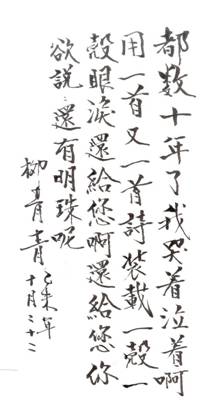 都数十年了我哭着泣着啊
用一首又一首詩裝載一殼一
殼眼淚還給您啊還給您你
欲說：還有明珠呢
柳青青
未年
十月二十二